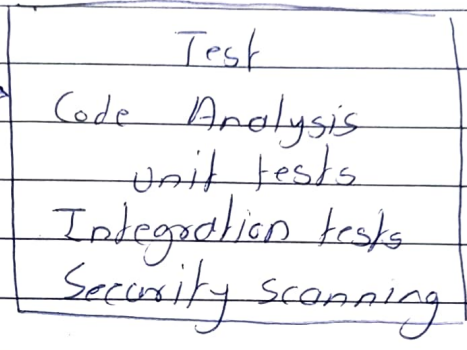 Test
Code Analysis
Unit tests
Integration tests
Security scanning